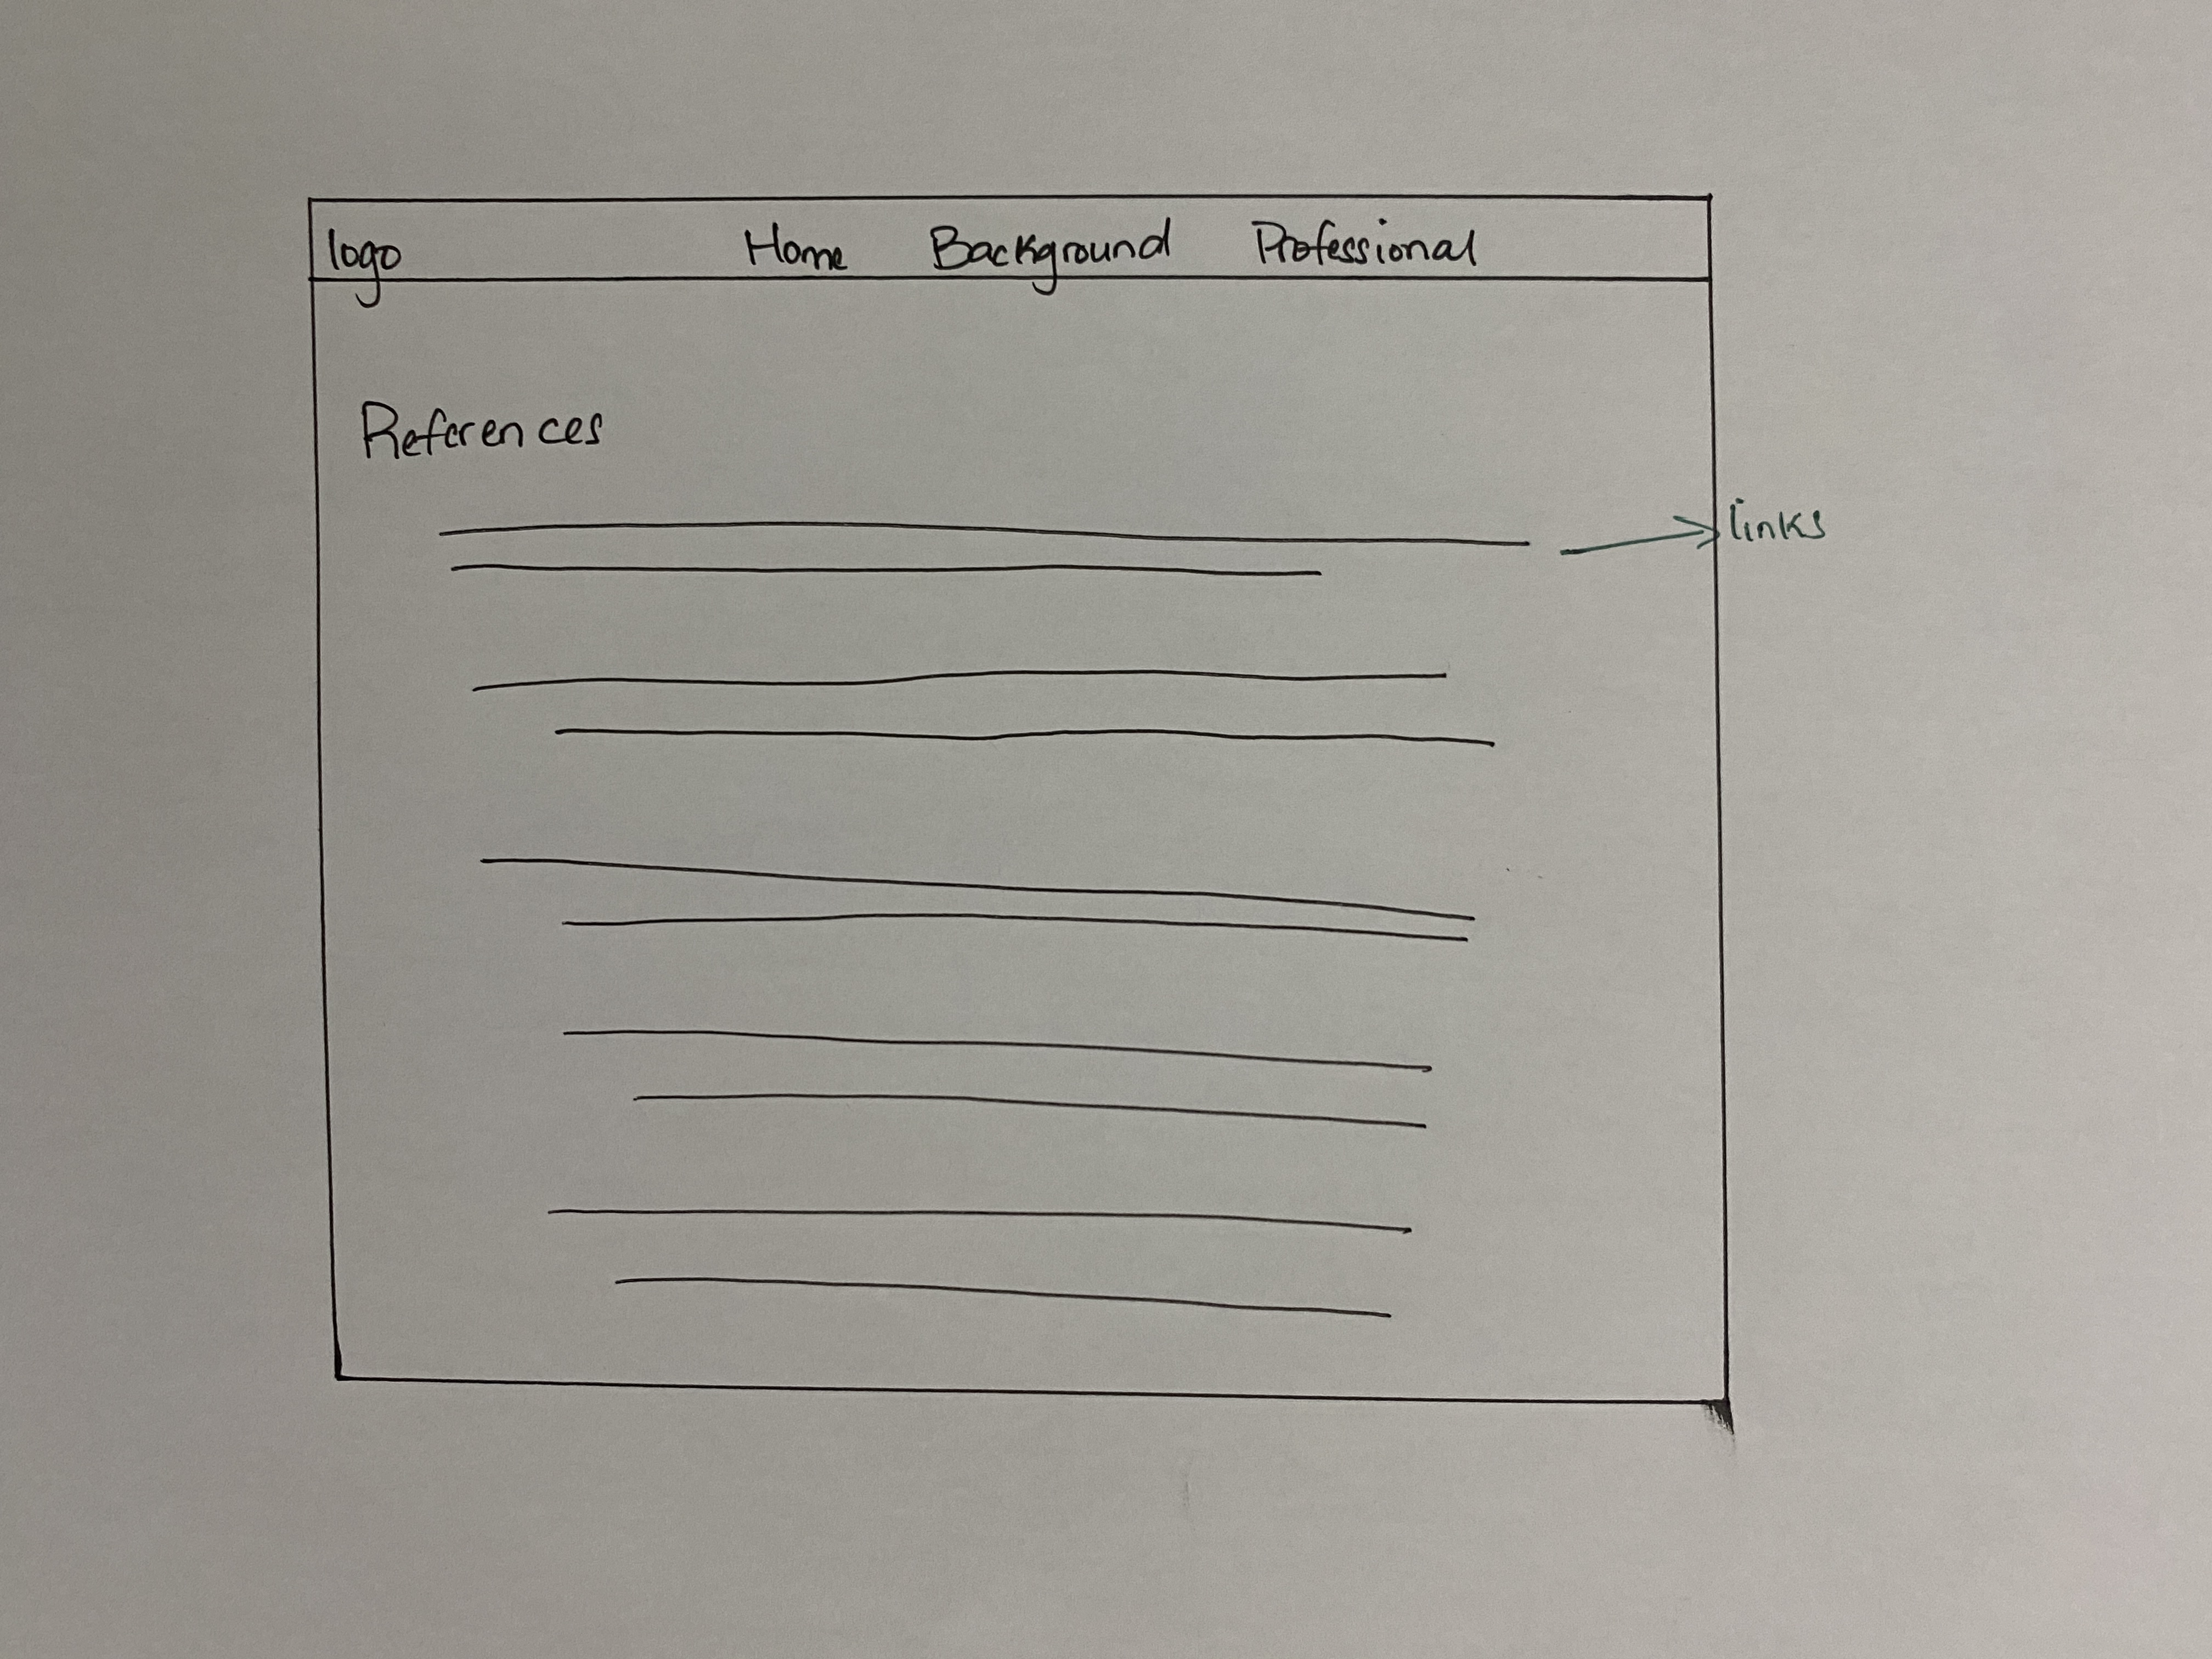 logo Home Background Professional
References
links